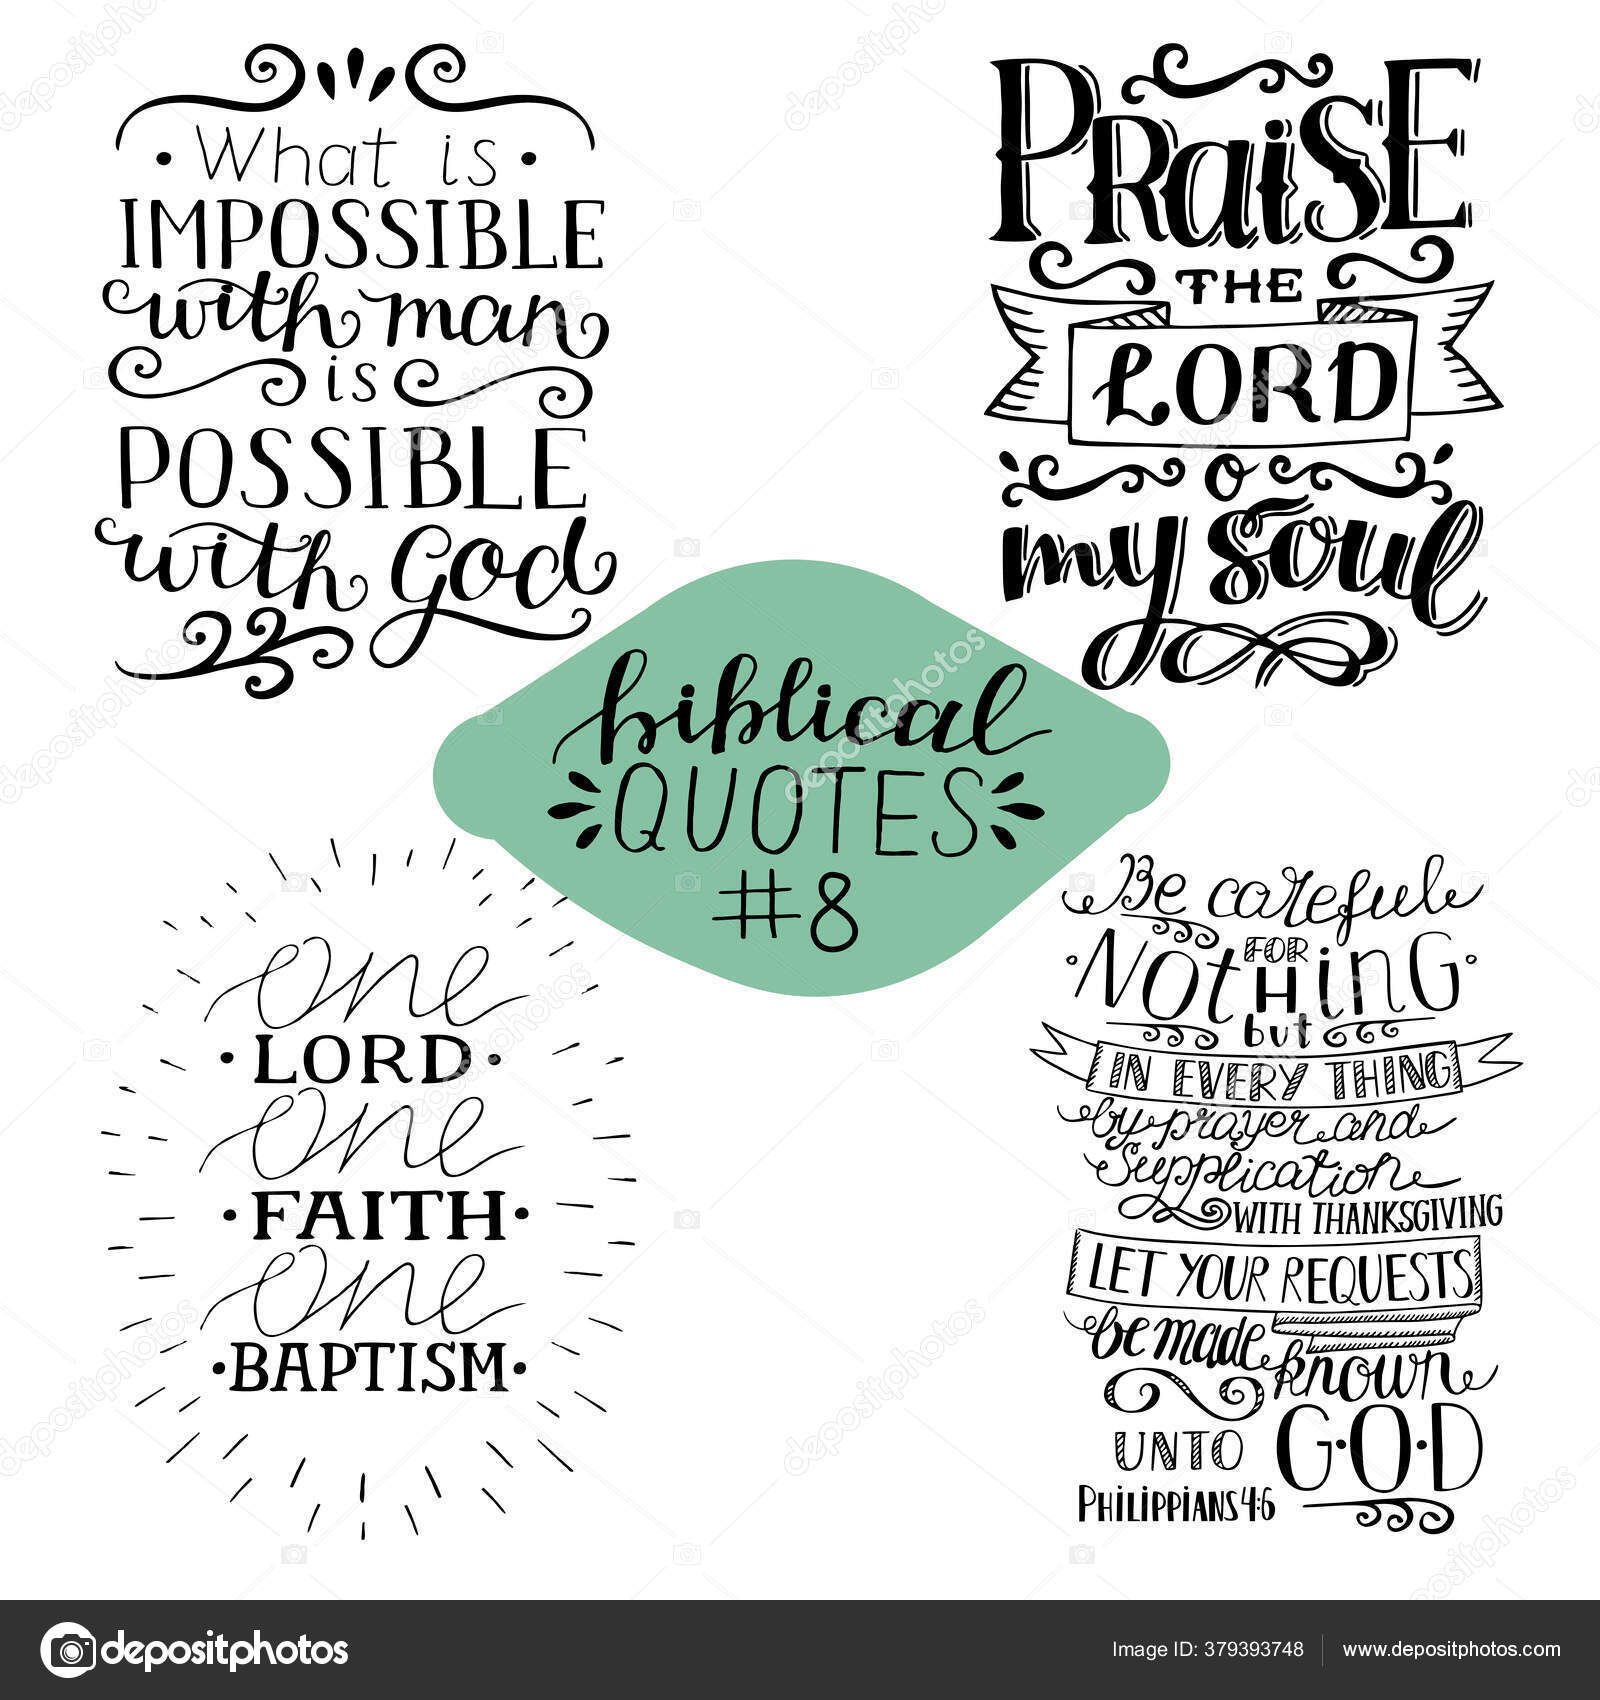 What is
IMPOSSIBLE
with man
is
POSSIBLE
with God
PRaiSE
THE
LORD
o
my soul
biblical
QUOTES
#8
one
LORD
one
FAITH
one
BAPTISM
Be careful
FOR
NOtHiNG
but
IN EVERY THING
by prayer and
supplication
WITH THANKSGIVING
LET YOUR REQUESTS
be made
known
UNTO G·O·D
PHiLiPPiANS 4:6
depositphotos
Image ID: 379393748
www.depositphotos.com